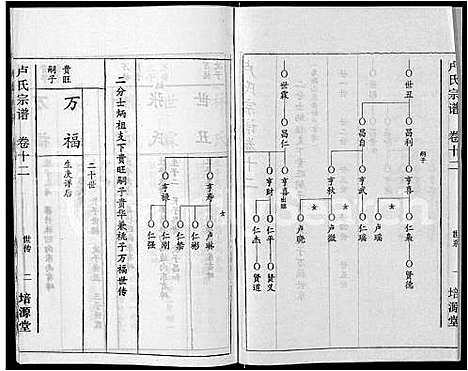 卢氏宗谱 卷十二
世系 一 培源堂
世丑
昌利
昌自
嗣子
亨喜
亨武
亨秋
仁
卢瑶
仁瑶
卢微
卢晓
贤德
世霖
昌仁
亨喜 出旺
亨财
仁义
仁杰
贤义
贤道
亨寿
亨禄
卢琳
仁彬
仁棠
仁刚
仁强
女
二分士炳祖支下贵旺嗣子贵华兼祧子万福世传
二十世
贵旺
嗣子
万福
生庚谋后
卢氏宗谱 卷十二
世传 二 培源堂